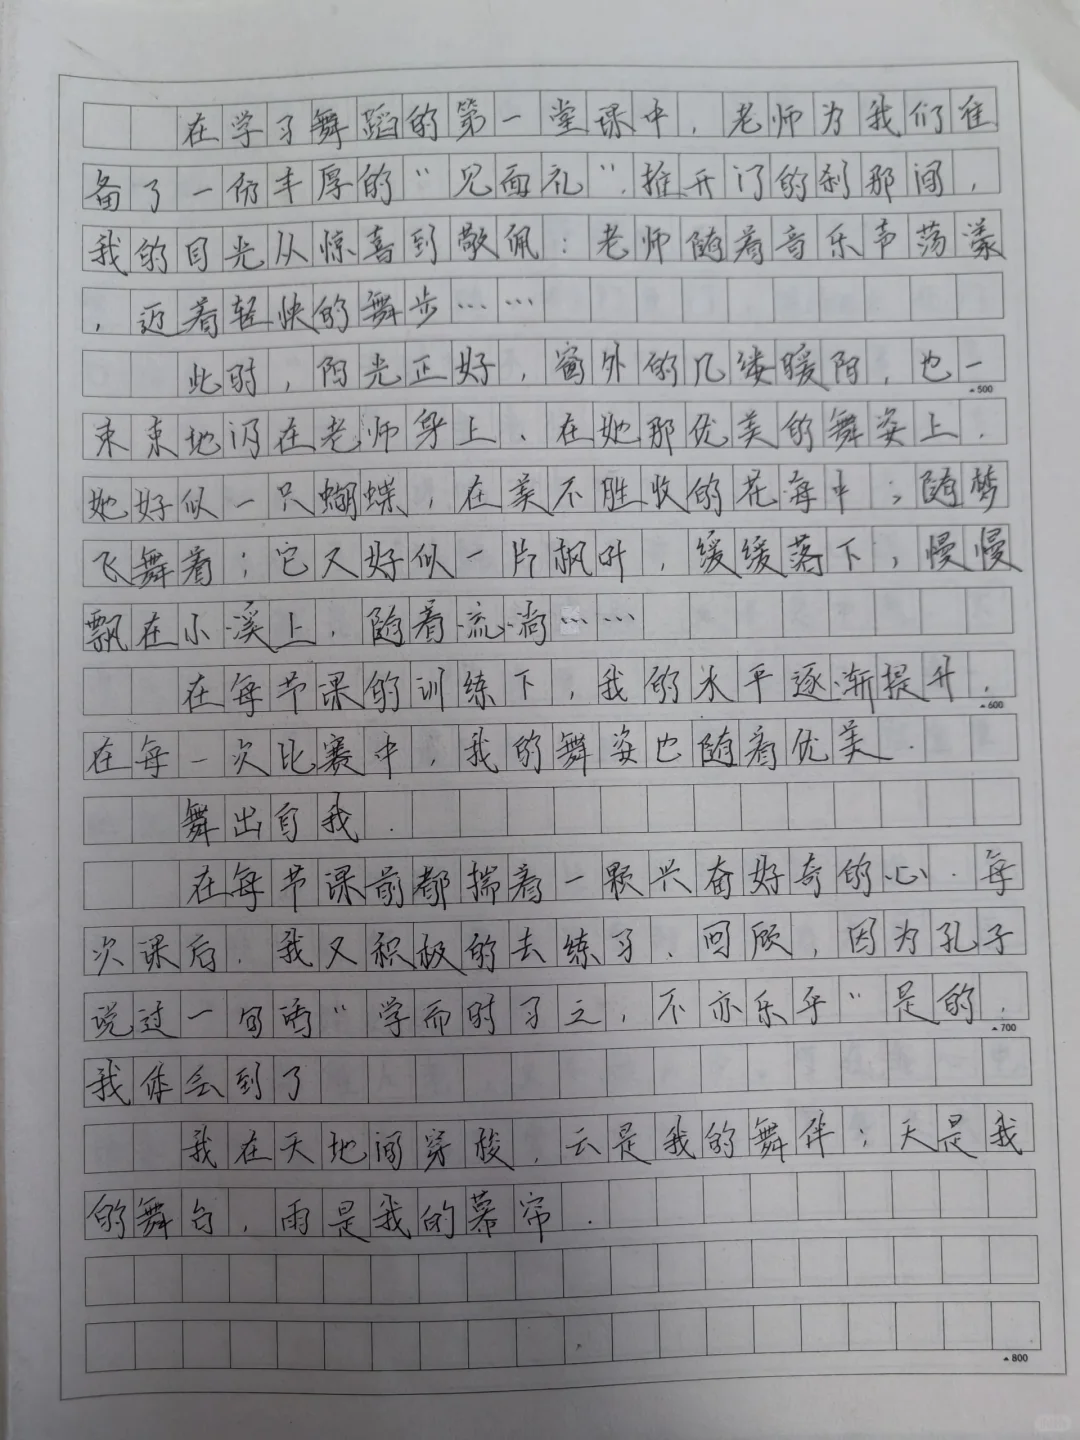 在学习舞蹈的第一堂课中，老师为我们准
备了一份丰厚的“见面礼”.推开门的刹那间，
我的目光从惊喜到敬佩：老师随着音乐声荡漾
，迈着轻快的舞步……
此时，阳光正好，窗外的几缕暖阳，也一
▲500
束束地闪在老师身上、在她那优美的舞姿上.
她好似一只蝴蝶，在美不胜收的花海中；随梦
飞舞着；它又好似一片枫叶，缓缓落下，慢慢
飘在小溪上，随着流淌……
在每节课的训练下，我的水平逐渐提升，
▲600
在每一次比赛中，我的舞姿也随着优美.
舞出自我.
在每节课前都揣着一颗兴奋好奇的心.每
次课后，我又积极的去练习、回顾，因为孔子
说过一句话“学而时习之，不亦乐乎”是的.
▲700
我体会到了
我在天地间穿梭，云是我的舞伴；天是我
的舞台，雨是我的幕帘.
▲800